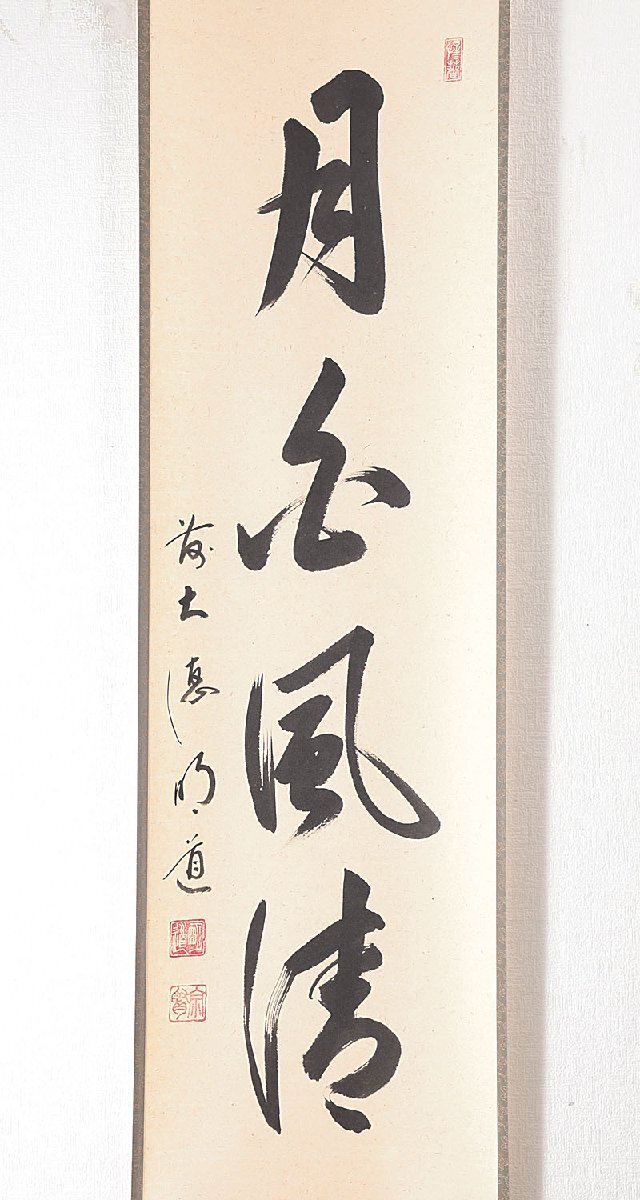 月白風清
前大徳明道